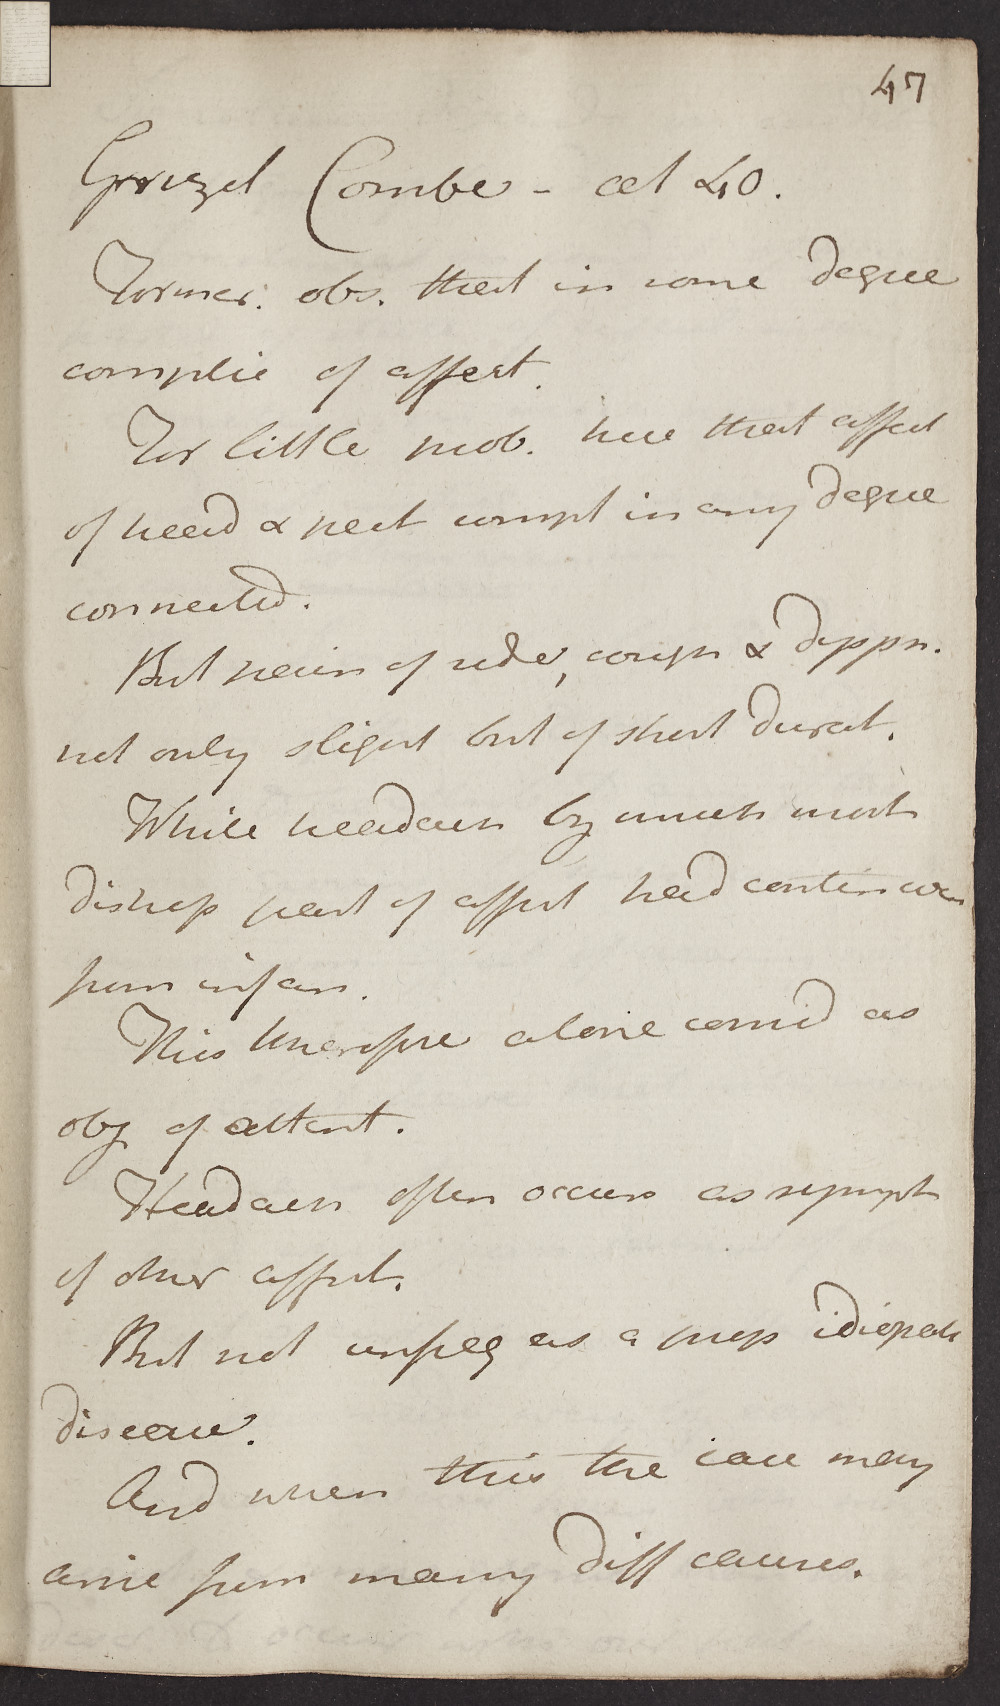 47
Grizel Combe - aet 40.
Former. obs. that in some degree
complic of affect.
For little prob. here that affect
of head & pect compl in any degree
connected.
But pain of side, cough & dyspn.
not only slight but of short durat.
While headach by much most
distress part of affect had continued
from infan.
This therefore alone consid as
obj of attent.
Headach often occurs as sympt
of other affect.
But not unfreq as a prop idiopath
disease.
And when this the case may
arise from many diff causes.